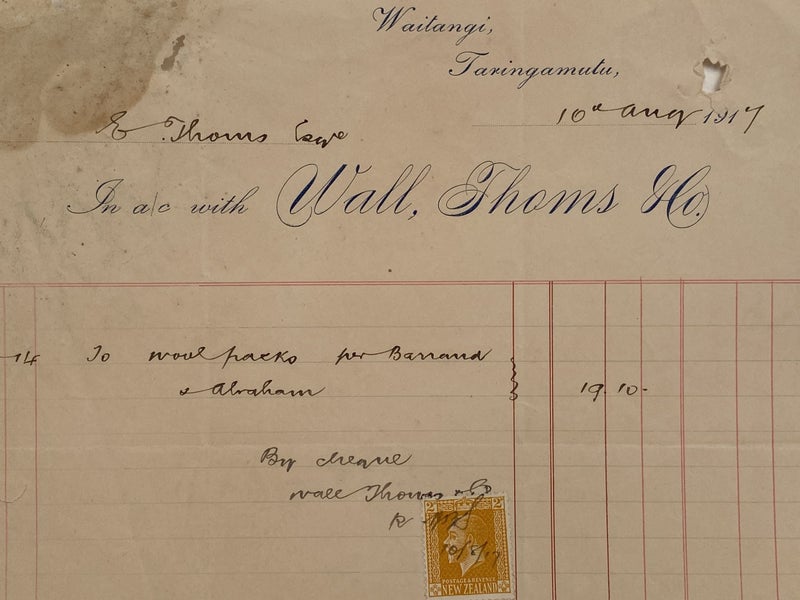 Waitangi,
Taringamutu,
10th Aug 1917
E Thoms Esqre
In a/c with Wall, Thoms & Co.
14 To wool packs per Barraud
& Abraham
19. 10-
By cheque
Wall Thoms & Co
2 2
10/8/17
POSTAGE & REVENUE
NEW ZEALAND